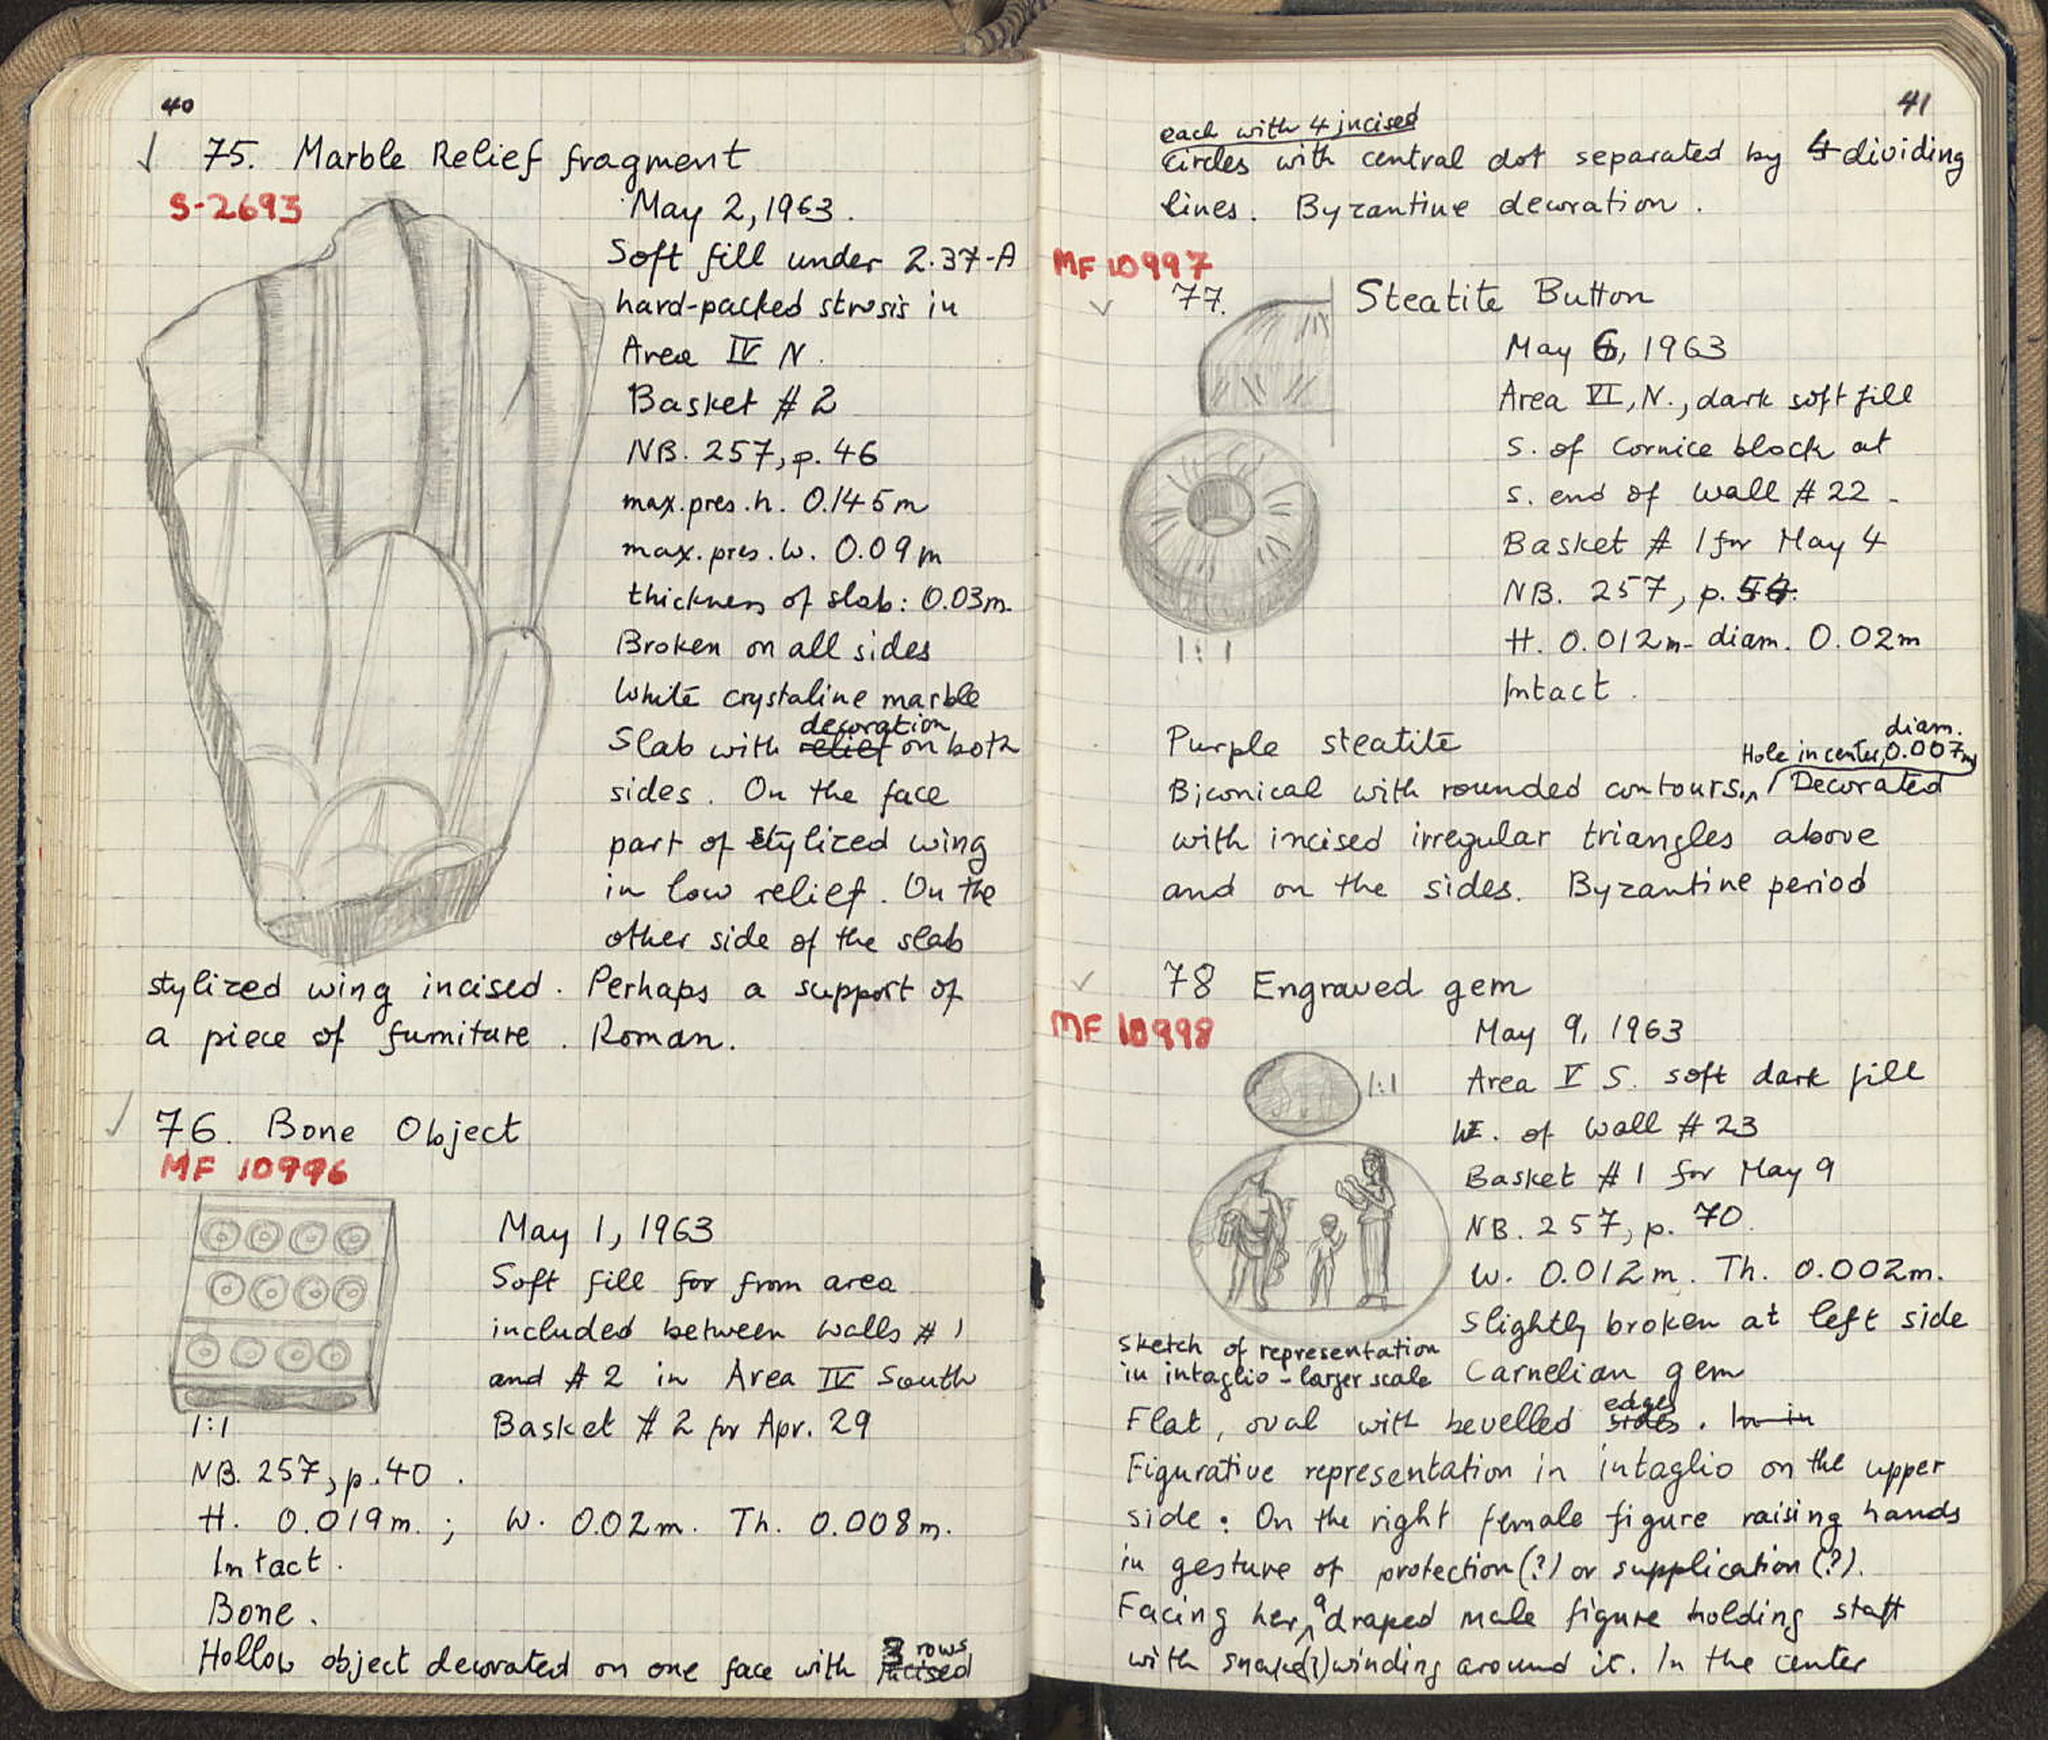 40
75. Marble Relief fragment
S-2693
May 2, 1963.
Soft fill under 2.37-A
hard-packed strosis in
Area IV N.
Basket # 2
NB. 257, p. 46
max. pres. h. 0.145m
max. pres. w. 0.09m
thickness of slab: 0.03m.
Broken on all sides
White crystaline marble
decoration
Slab with relief on both
sides. On the face
part of stylized wing
in low relief. On the
other side of the slab
stylized wing incised. Perhaps a support of
a piece of furniture. Roman.
76. Bone Object
MF 10996
May 1, 1963
Soft fill for from area
included between walls # 1
and # 2 in Area IV South
1:1
Basket # 2 for Apr. 29
NB. 257, p. 40.
H. 0.019m.; W. 0.02m. Th. 0.008m.
Intact.
Bone.
3 rows
Hollow object decorated on one face with incised
41
each with 4 incised
circles with central dot separated by 4 dividing
lines. Byzantine decoration.
MF 10997
77. Steatite Button
May 6, 1963
Area VI, N., dark soft fill
S. of cornice block at
S. end of wall # 22.
Basket # 1 for May 4
NB. 257, p.
H. 0.012m- diam. 0.02m
1:1
Intact.
Purple steatite
diam.
Hole in center, 0.007m
Biconical with rounded contours. Decorated
with incised irregular triangles above
and on the sides. Byzantine period
78 Engraved gem
MF 10998
May 9, 1963
1:1
Area V S. soft dark fill
of wall # 23
Basket # 1 for May 9
NB. 257, p. 70.
W. 0.012m. Th. 0.002m.
Slightly broken at left side
sketch of representation
in intaglio - larger scale
Carnelian gem
edges
Flat, oval with bevelled sides. In in
Figurative representation in intaglio on the upper
side: On the right female figure raising hands
in gesture of protection(?) or supplication(?).
Facing her, a draped male figure holding staff
with snake(?) winding around it. In the center